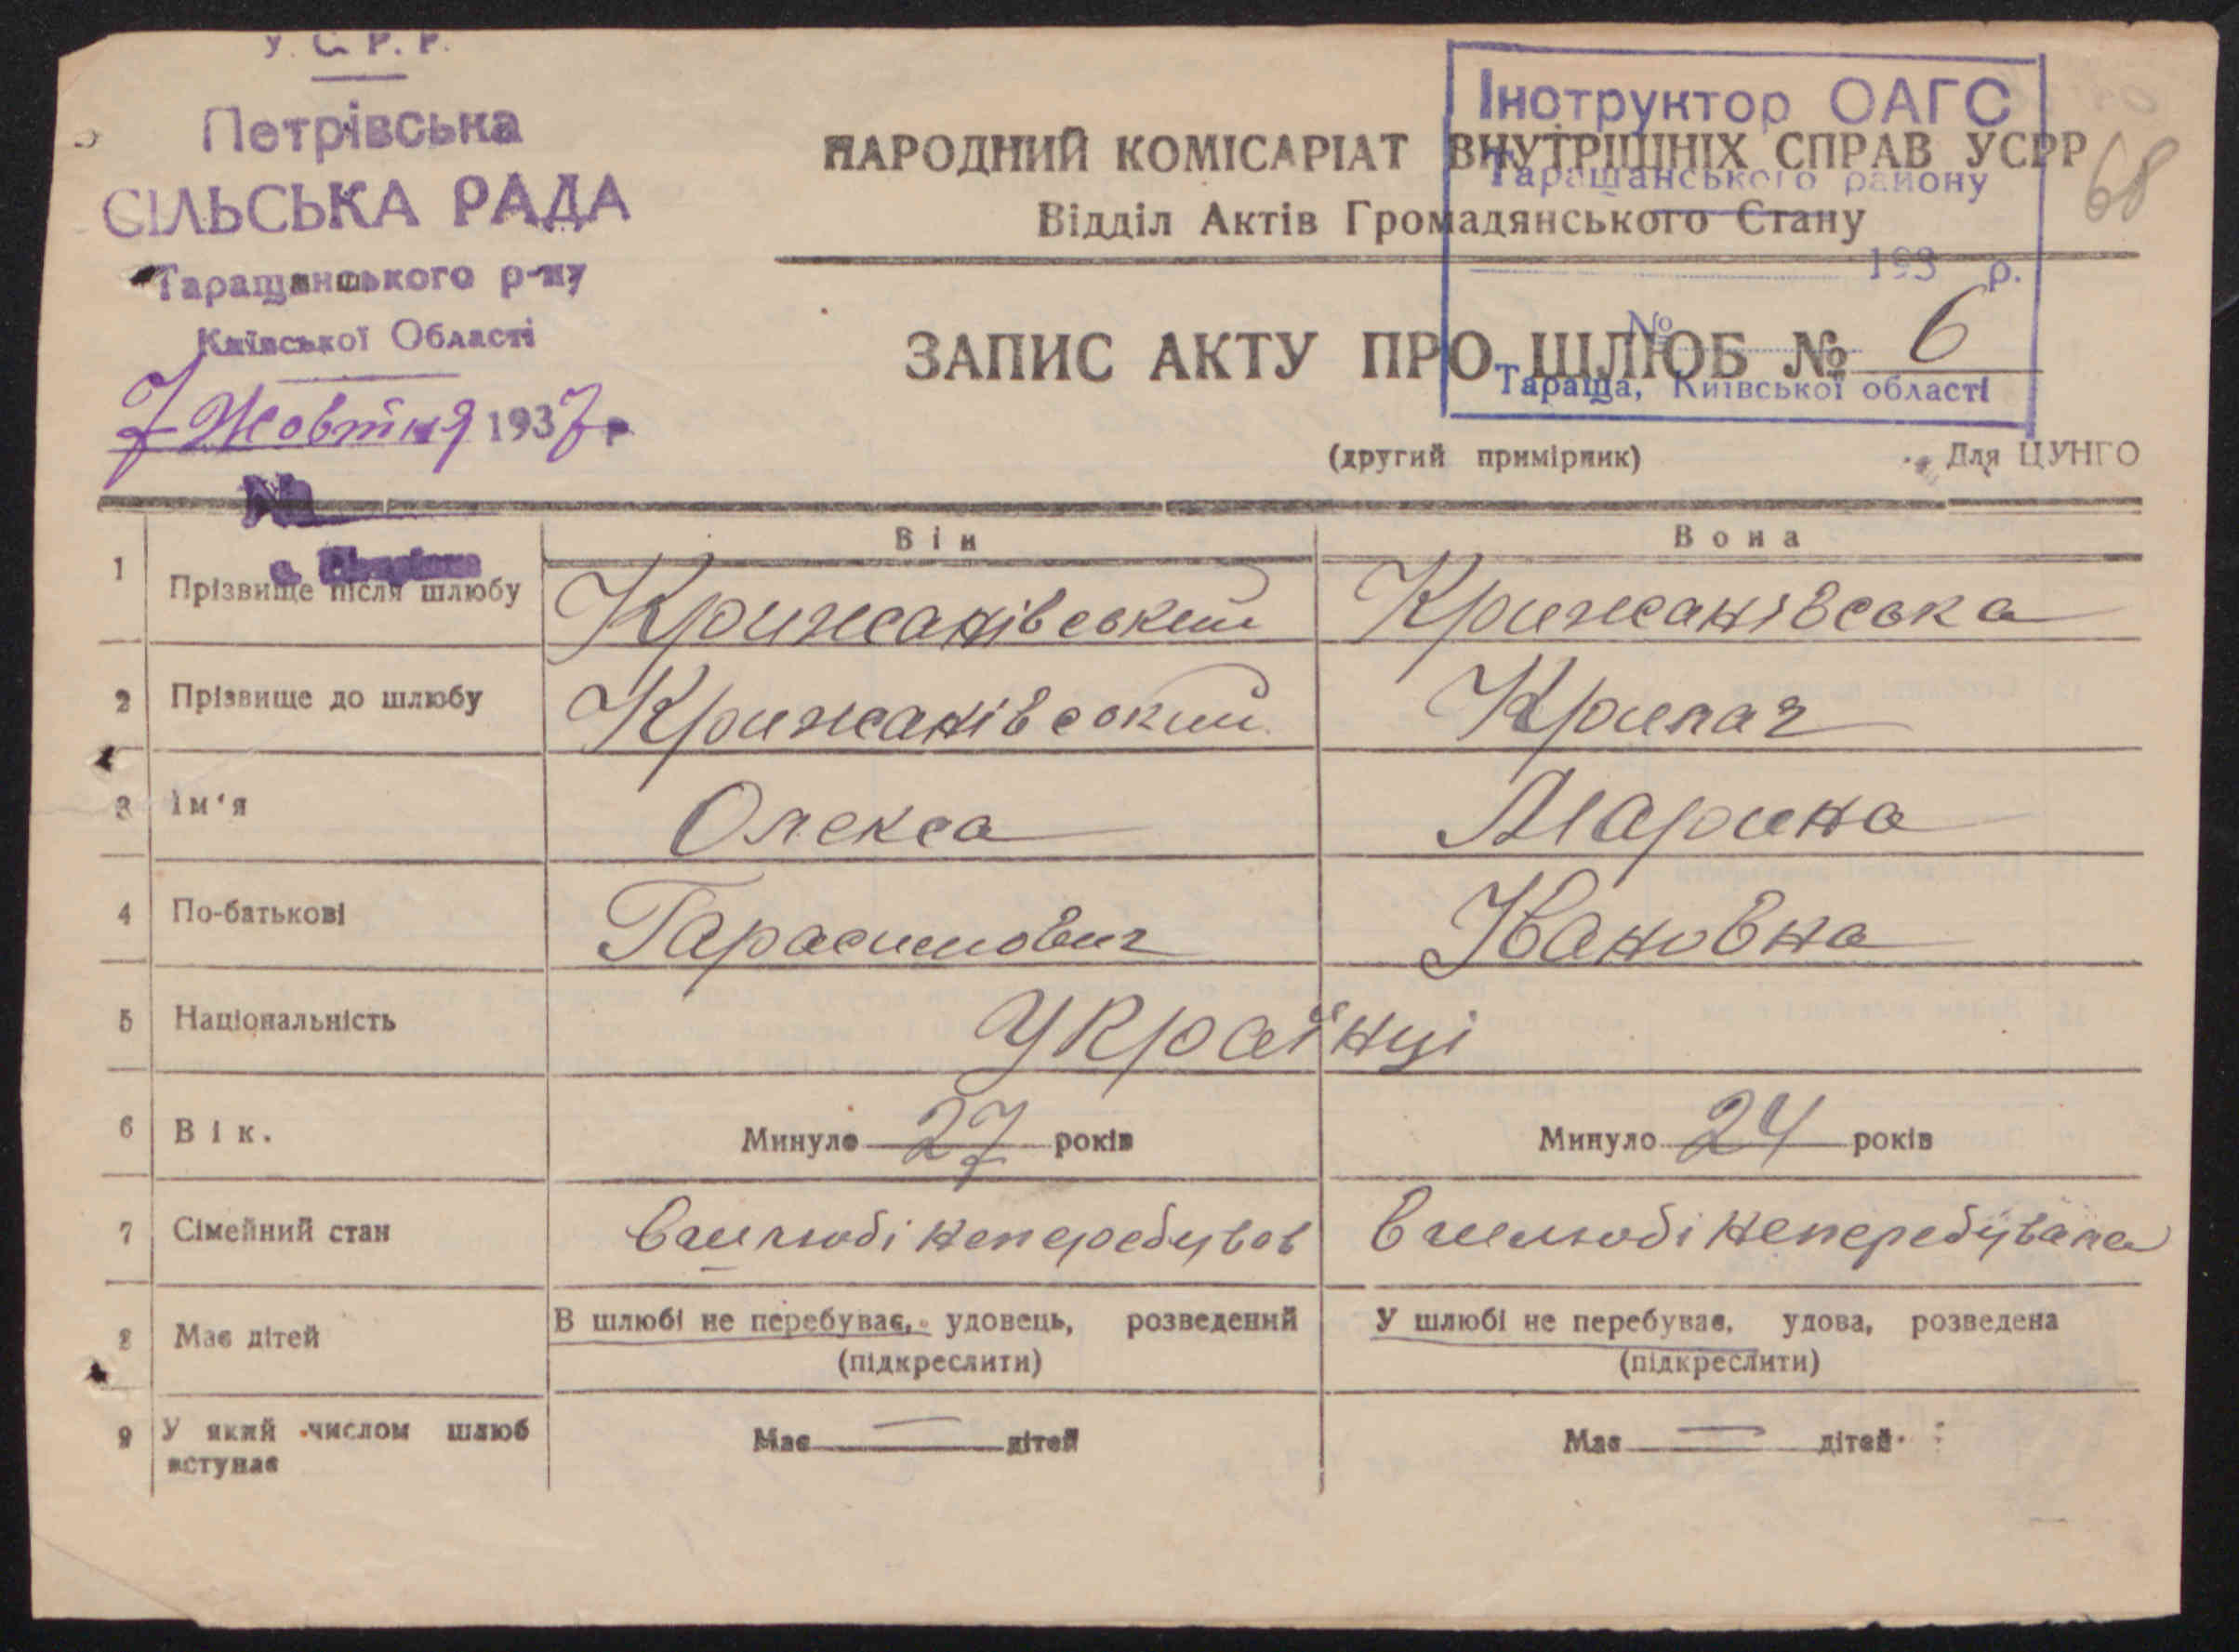 У. С. Р. Р.
Петрівська
СІЛЬСЬКА РАДА
Таращанського р-ну
Київської Області
7 Жовтня 1937 р
№
с.
Інструктор ОАГС
Таращанського району
193 р.
№
Тараща, Київської області
68
НАРОДНИЙ КОМІСАРІАТ ВНУТРІШНІХ СПРАВ УСРР
Відділ Актів Громадянського Стану
ЗАПИС АКТУ ПРО ШЛЮБ № 6
(другий примірник) Для ЦУНГО
Він Вона
1 Прізвище після шлюбу Крижанівський Крижанівська
2 Прізвище до шлюбу Крижанівський Крипач
3 Ім'я Олекса Марина
4 По-батькові Гарасимович Івановна
5 Національність Українці
6 Вік. Минуло 27 років Минуло 24 років
7 Сімейний стан В шлюбі неперебував В шлюбі неперебувала
8 Має дітей В шлюбі не перебуває, удовець, розведений У шлюбі не перебуває, удова, розведена
(підкреслити) (підкреслити)
9 У який числом шлюб Має — дітей Має — дітей
вступає